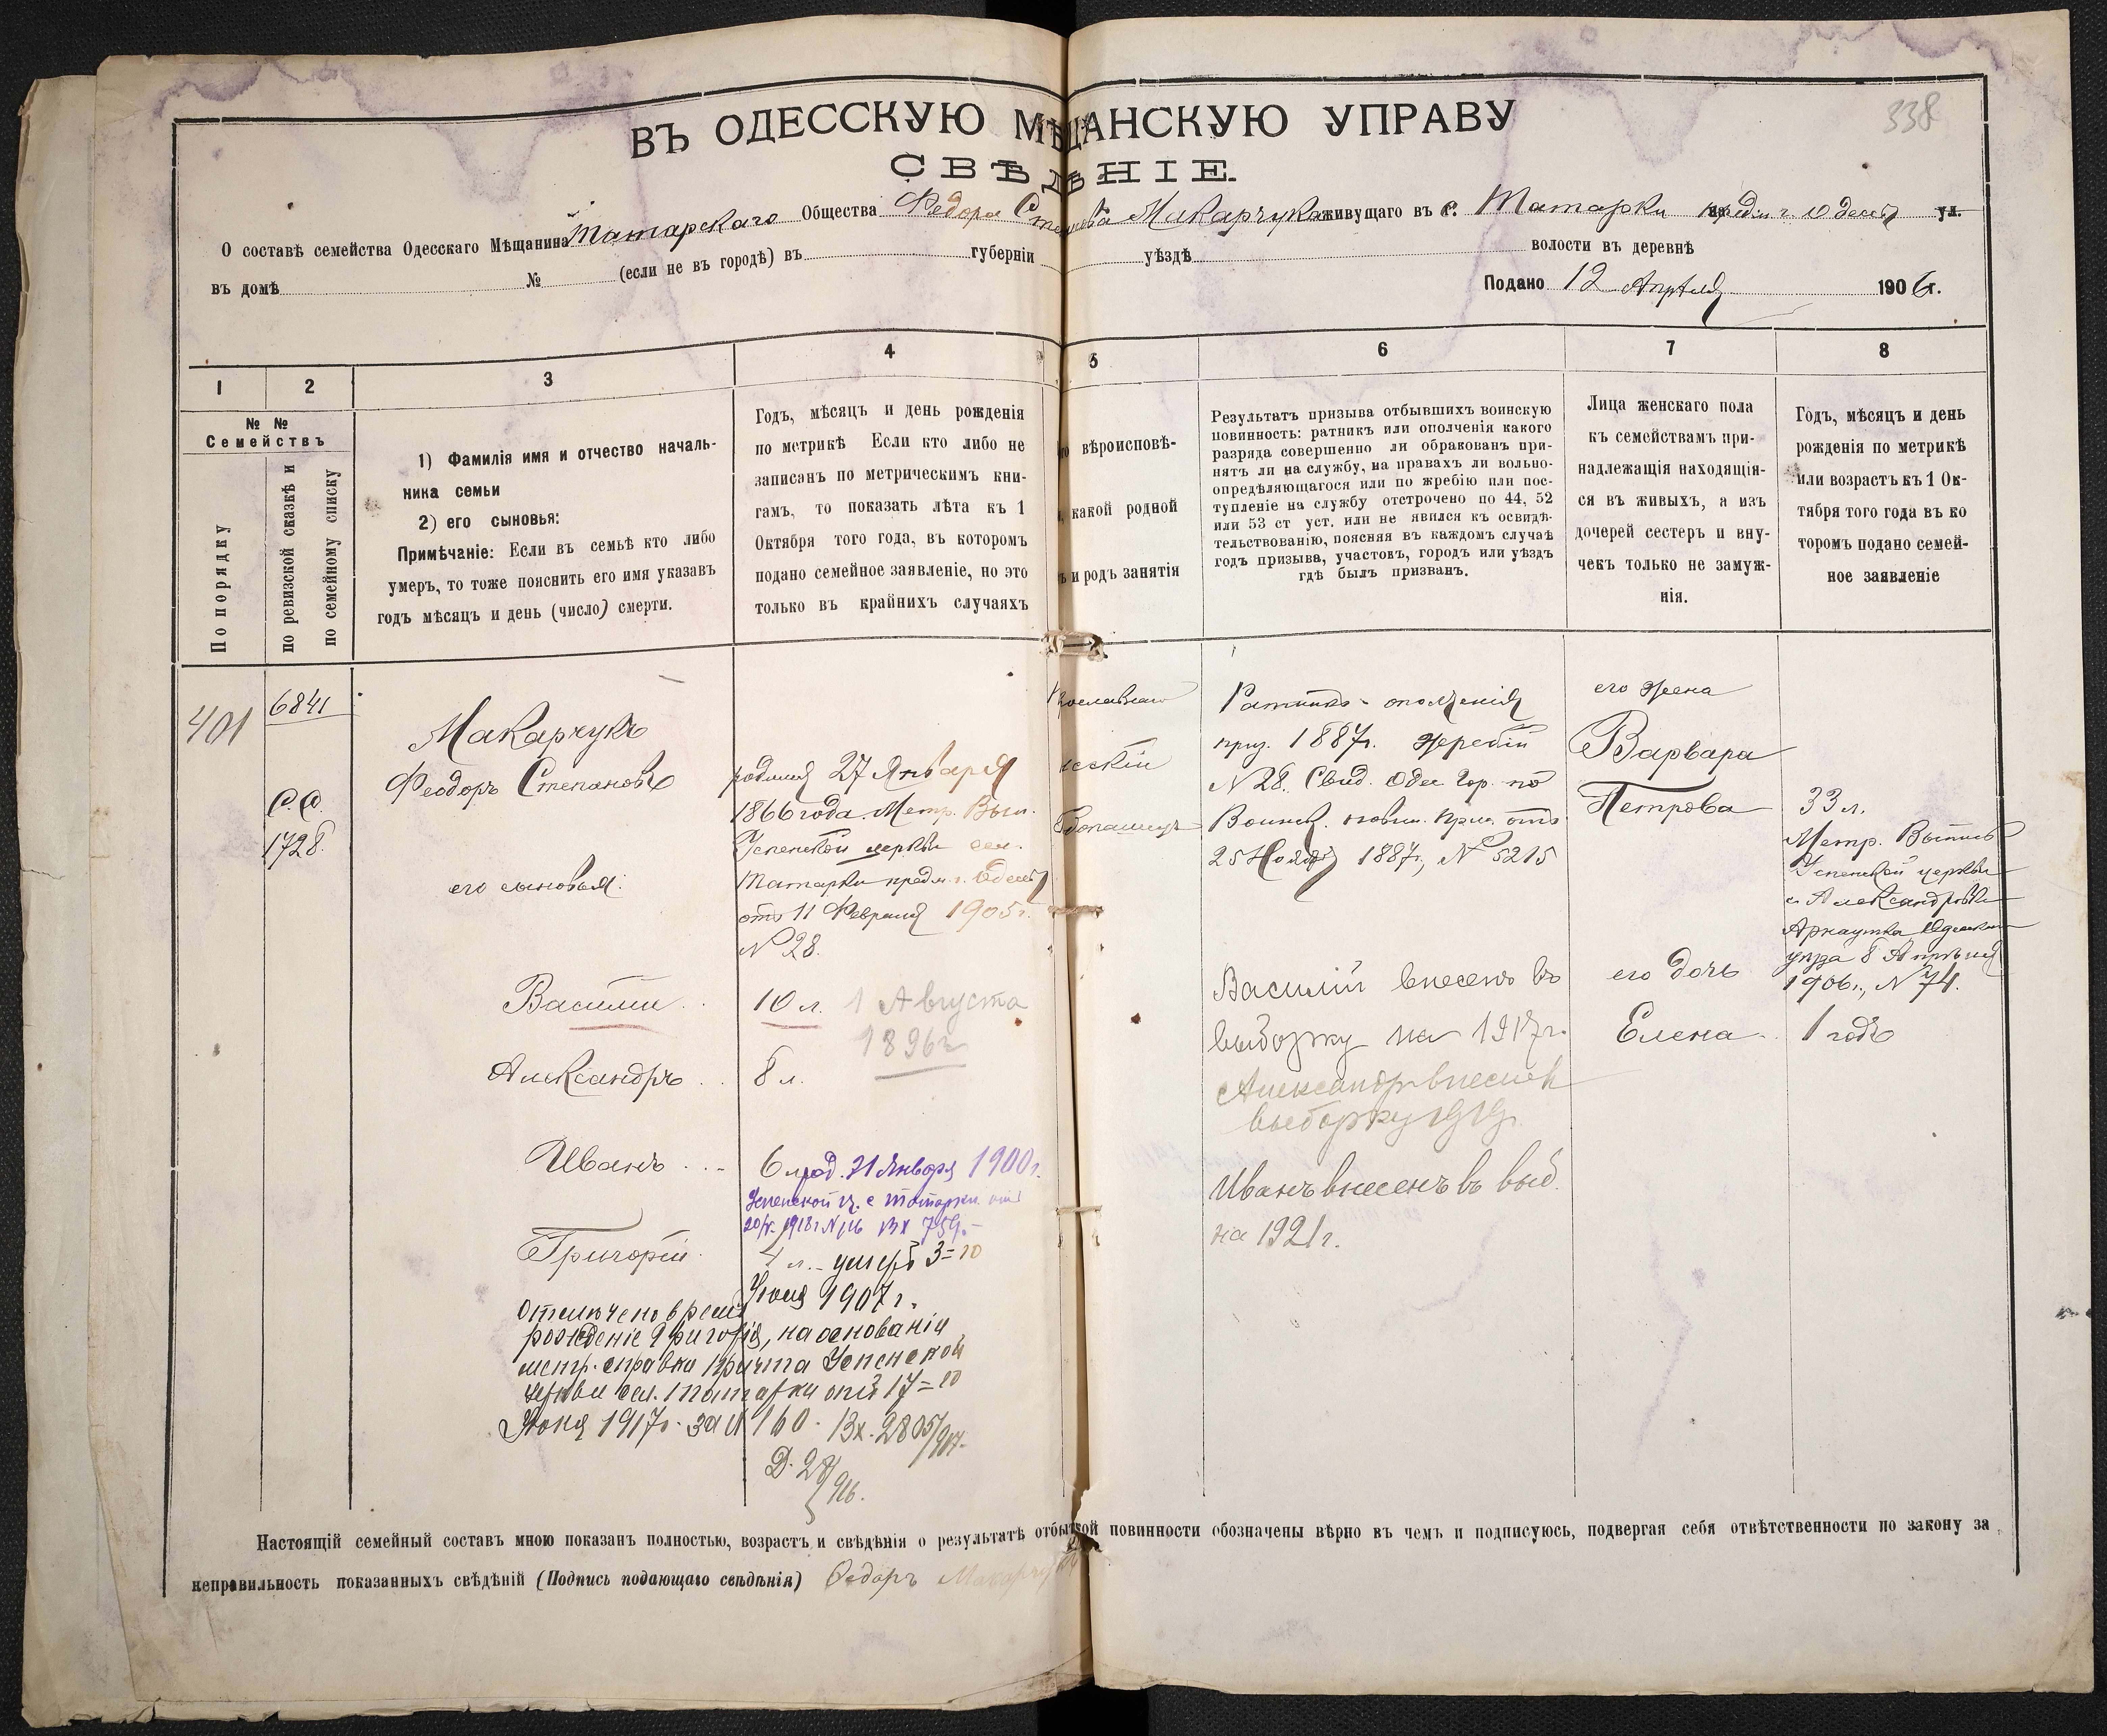 338
ВЪ ОДЕССКУЮ МѢЩАНСКУЮ УПРАВУ
СВѢДѢНІЕ
О составѣ семейства Одесскаго Мѣщанина Татарскаго Общества Федора Степанова Макарчука живущаго въ с. Татарки предм. г. Одессы ул.
въ домѣ № (если не въ городѣ) въ губерніи уѣздѣ волости въ деревнѣ
Подано 12 Апрѣля 1906 г.
1 2 3 4 5 6 7 8
№ №
Семействъ
По порядку
по ревизской сказкѣ и
по семейному списку
1) Фамилія имя и отчество началь-
ника семьи
2) его сыновья:
Примѣчаніе: Если въ семьѣ кто либо
умеръ, то тоже пояснить его имя указавъ
годъ мѣсяцъ и день (число) смерти.
Годъ, мѣсяцъ и день рожденія
по метрикѣ Если кто либо не
записанъ по метрическимъ кни-
гамъ, то показать лѣта къ 1
Октября того года, въ которомъ
подано семейное заявленіе, но это
только въ крайнихъ случаяхъ
вѣроисповѣ-
какой родной
и родъ занятія
Результатъ призыва отбывшихъ воинскую
повинность: ратникъ или ополченія какого
разряда совершенно ли обракованъ при-
нятъ ли на службу, на правахъ ли вольно-
опредѣляющагося или по жребію или пос-
тупленіе на службу отстрочено по 44, 52
или 53 ст уст. или не явился къ освидѣ-
тельствованію, поясняя въ каждомъ случаѣ
годъ призыва, участовъ, городъ или уѣздъ
гдѣ былъ призванъ.
Лица женскаго пола
къ семействамъ при-
надлежащія находящія-
ся въ живыхъ, а изъ
дочерей сестеръ и вну-
чекъ только не замуж-
нія.
Годъ, мѣсяцъ и день
рожденія по метрикѣ
или возрастъ къ 1 Ок-
тября того года въ ко
торомъ подано семей-
ное заявленіе
401
6841
С.С.
1728
Макарчукъ
Феодоръ Степановъ
его сыновья:
Василій
Александръ
Иванъ
Григорій
родился 27 Января
1866 года. Метр. Вып.
Успенской церкви сел.
Татарки предм. г. Одессы
отъ 11 Февраля 1905 г.
№ 28.
10 л. 1 Августа
1896 г.
8 л.
6 л. род. 21 Января 1900 г.
Успенской ц. с Татарки отъ
4 л. умеръ 3=го
Іюля 1907 г.
Отмѣчено время
рожденіе Григорія, на основаніи
метр. справки причта Успенской
церкви сел. Татарки отъ 17=го
Іюня 1917 г. за № 160. Вх. 2805/917.
Д. 28/916.
русскій
Ратникъ ополченія
приз. 1887 г. жребій
№ 28. Свид. Одес Гор. по
Воинск. повин. Прис. отъ
25 Ноября 1887 г., № 5215
Василій внесенъ въ
выборку на 1917 г.
Александръ внесенъ
выборку 1919.
Иванъ внесенъ въ выб.
на 1921 г.
его жена
Варвара
Петрова
его дочь
Елена
33 л.
Метр. Выпись
Успенской церкви
с. Александровки
Одесскаго
уѣзда 8 Апрѣля
1906 г., № 74.
1 годъ
Настоящій семейный составъ мною показанъ полностью, возрастъ и свѣдѣнія о результатѣ отбытой повинности обозначены вѣрно въ чемъ и подписуюсь, подвергая себя отвѣтственности по закону за
неправильность показанныхъ свѣдѣній (Подпись подающаго свѣдѣнія) Федоръ Макарчукъ